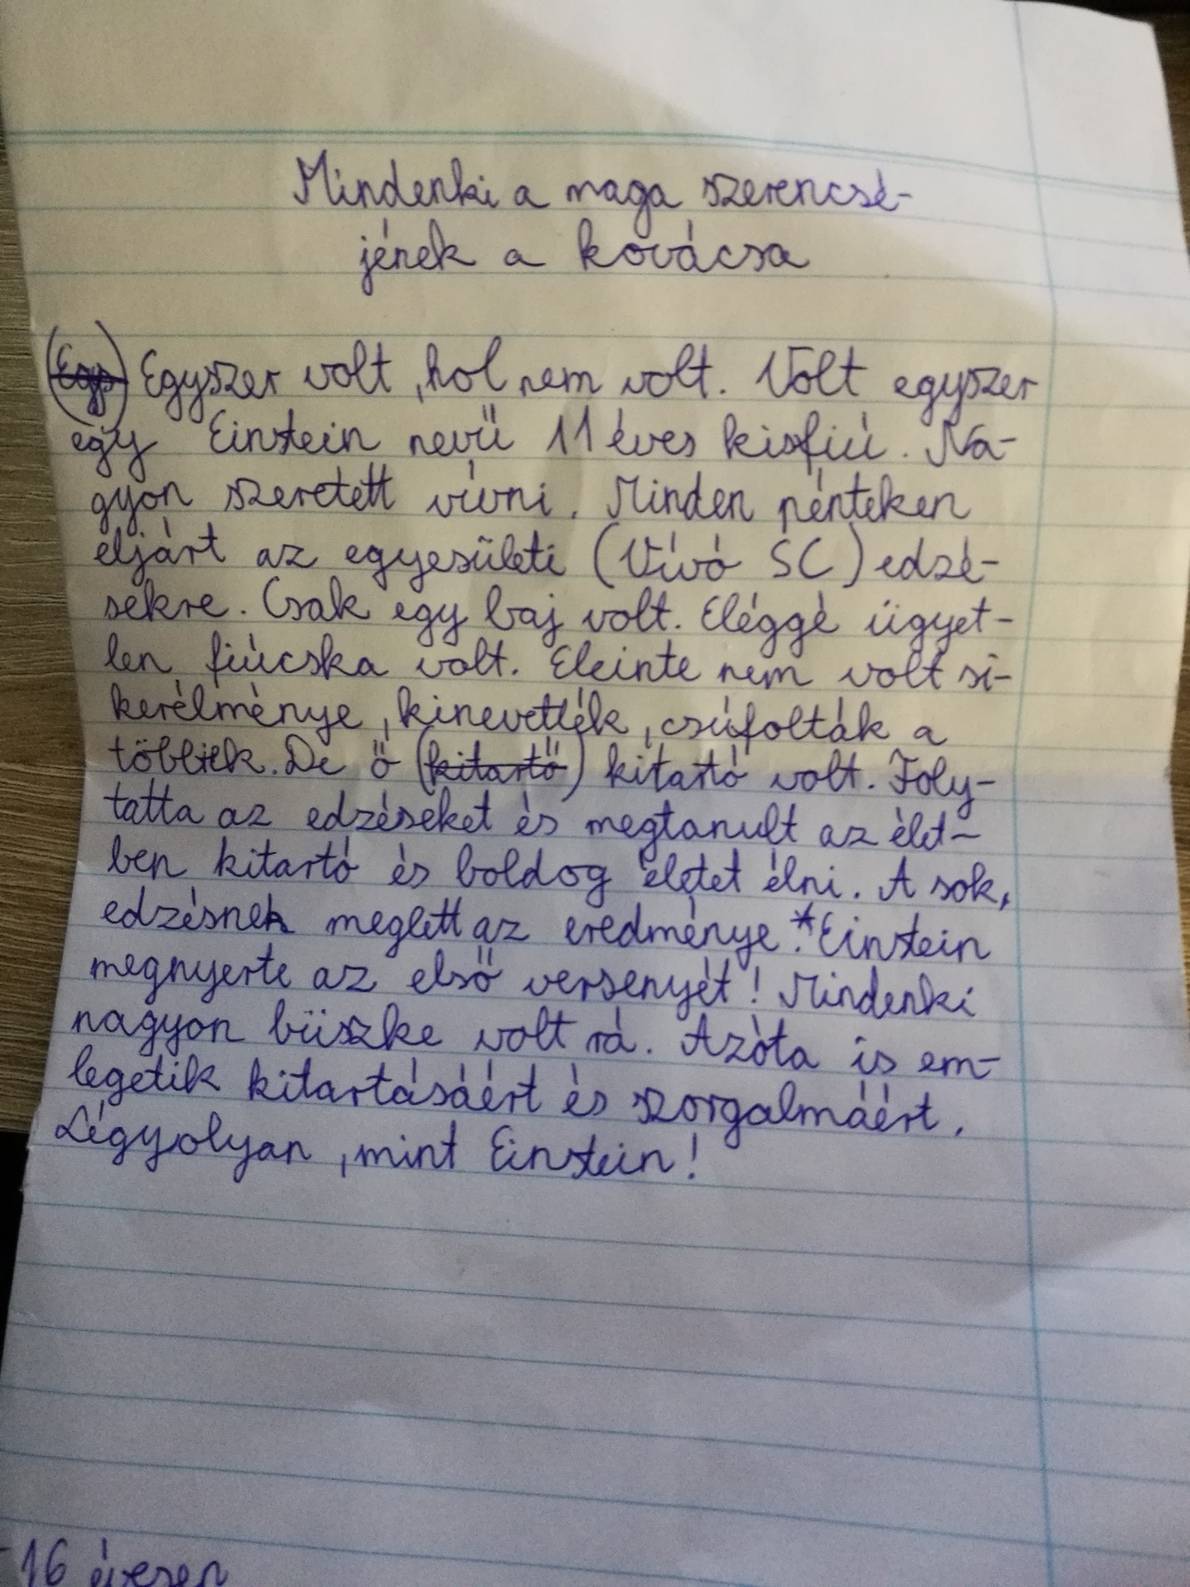 Mindenki a maga szerencsé-
jének a kovácsa
(Egy) Egyszer volt, hol nem volt. Volt egyszer
egy Einstein nevű 11 éves kisfiú. Na-
gyon szeretett vívni. Minden pénteken
eljárt az egyesületi (Vívó SC) edzé-
sekre. Csak egy baj volt. Eléggé ügyet-
len fiúcska volt. Eleinte nem volt si-
kerélménye, kinevették, csúfolták a
többiek. De ő (kitartó) kitartó volt. Foly-
tatta az edzéseket és megtanult az élet-
ben kitartó és boldog életet élni. A sok,
edzésnek meglett az eredménye.* Einstein
megnyerte az első versenyét! Mindenki
nagyon büszke volt rá. Azóta is em-
legetik kitartásáért és szorgalmáért.
Légy olyan, mint Einstein!
16 évesen